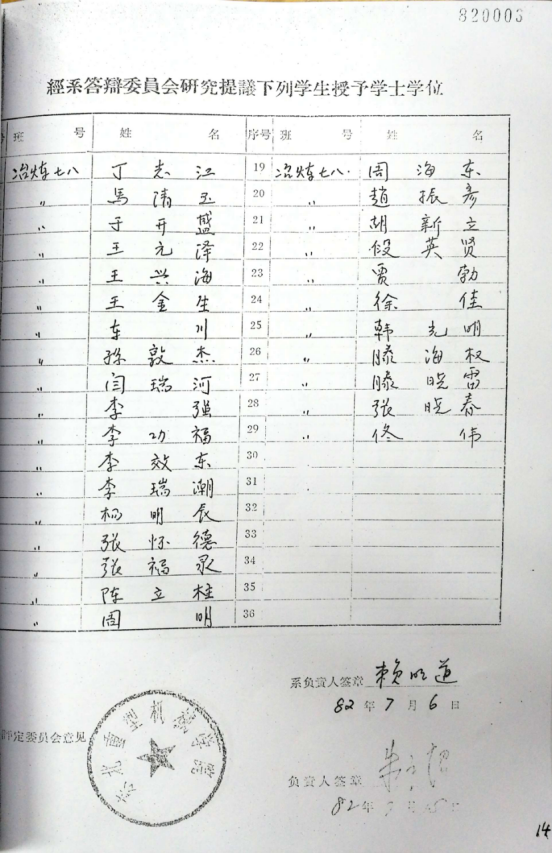 820003
經系答辯委員会研究提議下列学生授予学士学位
班 号 姓 名 序号 班 号 姓 名
冶炼七八 丁志江 19 冶炼七八 周海东
〃 馬清玉 20 〃 趙振彦
〃 于开盛 21 〃 胡新立
〃 王元泽 22 〃 段英贤
〃 王兴海 23 〃 贾勃
〃 王金生 24 〃 徐佳
〃 车川 25 〃 韩光明
〃 孙敦杰 26 〃 滕海权
〃 闫瑞河 27 〃 滕晓雷
〃 李强 28 〃 张晓春
〃 李功福 29 〃 佟伟
〃 李效东 30
〃 李瑞潮 31
〃 杨明辰 32
〃 张怀德 33
〃 张福录 34
〃 陈立柱 35
〃 周明 36
系负責人签章 赖明道
82年7月6日
評定委員会意见
东北重型机械学院
负責人签章
82年7月 日
14